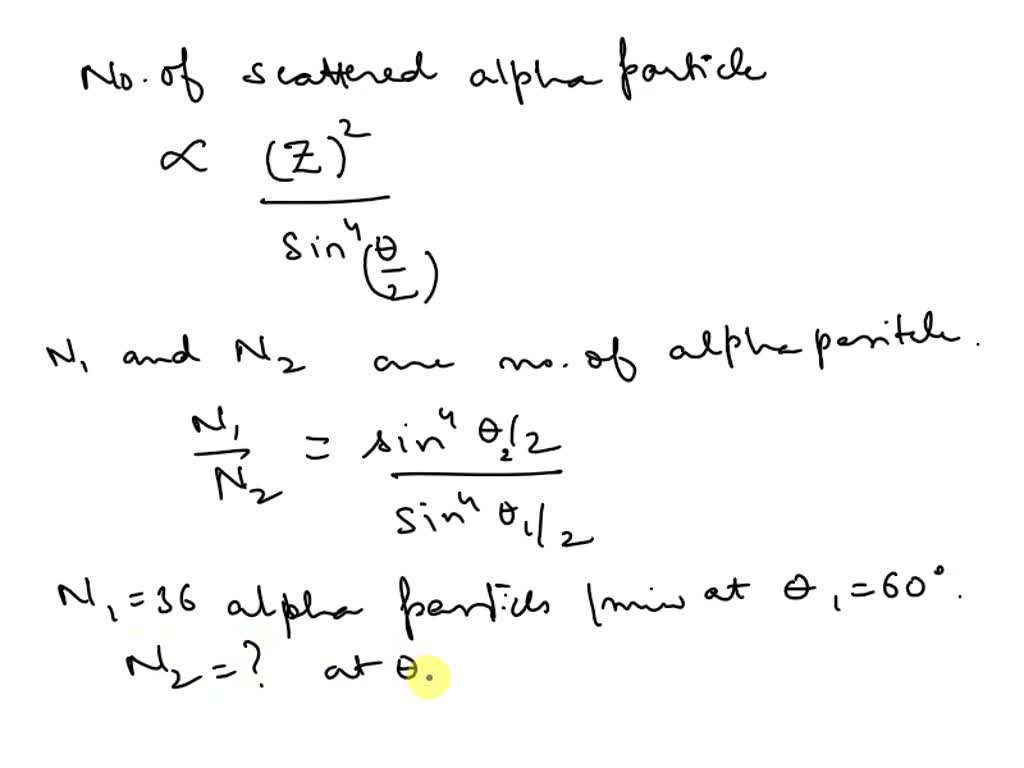 No. of scattered alpha particle
∝ (Z)²
sin⁴(θ/2)
N₁ and N₂ are no. of alpha paritcle.
N₁/N₂ = sin⁴ θ₂/2
sin⁴ θ₁/2
N₁ = 36 alpha particls /min at θ₁ = 60°.
N₂ = ? at θ.